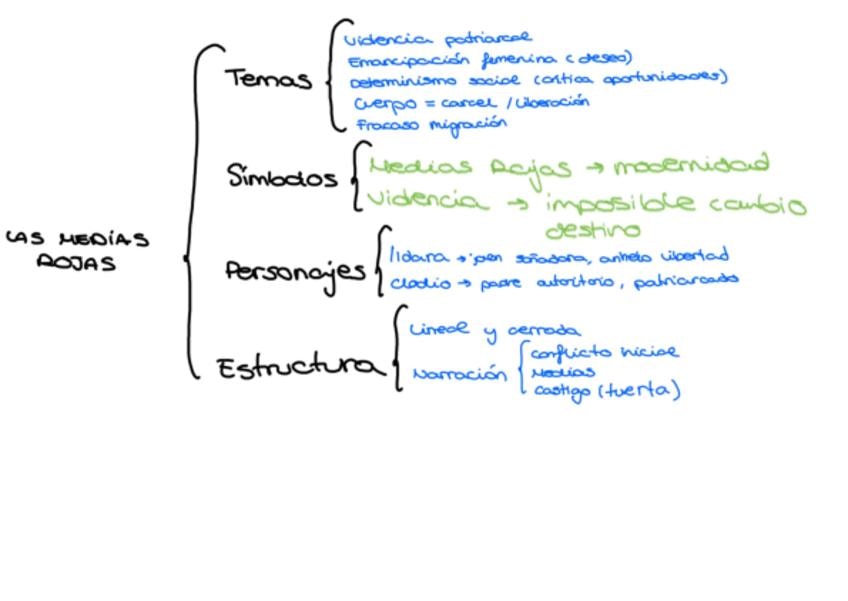 LAS MEDÍAS
ROJAS
Temas
Violencia patriarcal
Emancipación femenina (deseo)
Determinismo social (crítica oportunidades)
Cuerpo = carcel / liberación
Fracaso migración
Símbolos
Medias Rojas → modernidad
Violencia → imposible cambio
destino
Personajes
Ildara → joen soñadora, anhelo libertad
Clodio → padre autoritorio, patriarcado
Estructura
Lineal y cerrada
Narración
conflicto inicial
Medias
castigo (tuerta)